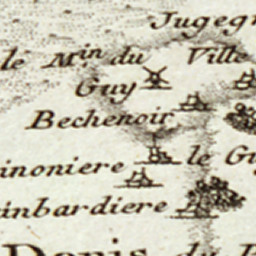 Jugegr
le Min du Ville
Guy
Bechenoir
inoniere le Gu
inbardiere
Denis du